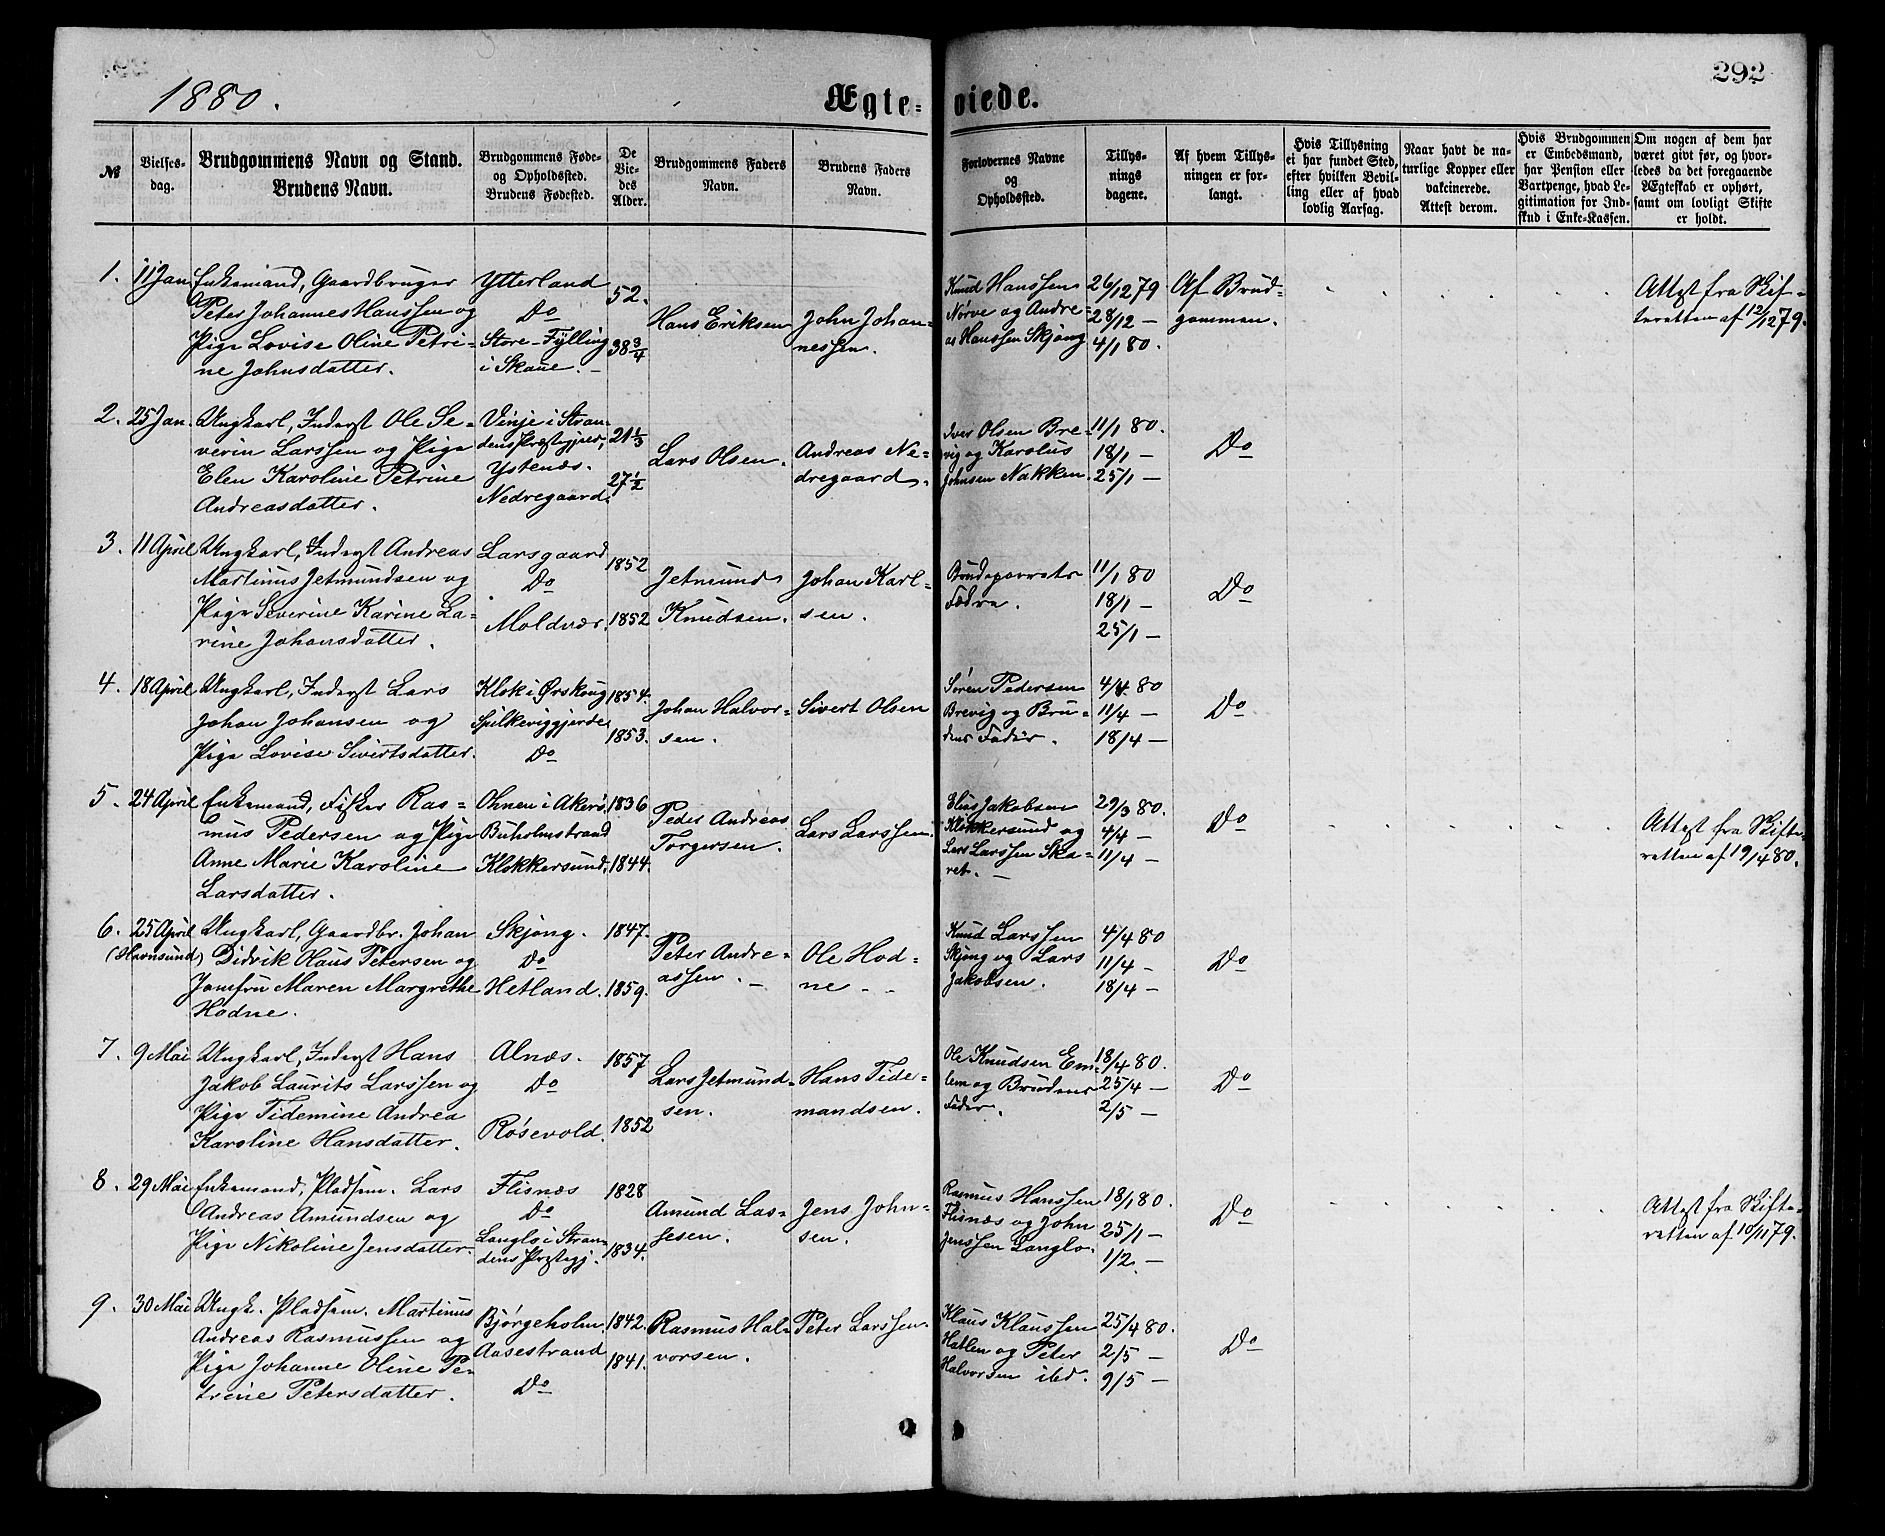 1880.
Ægte-
viede.
292
№
Vielses-
dag.
Brudgommens Navn og Stand.
Brudens Navn.
Brudgommens Føde-
og Opholdssted.
Brudens Fødested.
De
Vie-
des
Alder.
Brudgommens Faders
Navn.
Brudens Faders
Navn.
Forlovernes Navne
og
Opholdssted.
Tillys-
nings
dagene.
Af hvem Tillys-
ningen er for-
langt.
Hvis Tillysning
ei har fundet Sted,
efter hvilken Bevil-
ling eller af hvad
lovlig Aarsag.
Naar havt de na-
turlige Kopper eller
vakcinerede.
Attest derom.
Hvis Brudgommen
er Embedsmand,
har Pension eller
Vartpenge, hvad Le-
gitimation for Ind-
skud i Enke-Kassen.
Om nogen af dem har
været givt før, og hvor-
ledes da det foregaaende
Ægteskab er ophørt,
samt om lovligt Skifte
er holdt.
1.
11 Jan
Enkemand, Gaardbruger
Peter Johannes Hanssen og
Pige Lovise Oline Petri-
ne Johnsdatter.
Ytterland
Do
Store-Fylling
i Skaue.
52.
38 3/4
Hans Eriksen
John Johan-
nessen.
Knud Hanssen
Nørve og Andre-
as Hanssen Skjong
26/12 79
28/12 —
4/1 80.
Af Brud-
gommen.
Attest fra Skif-
teretten af 12/12 79.
2.
25 Jan.
Ungkarl, Inderst Ole Se-
verin Larssen og Pige
Elen Karoline Petrine
Andreasdatter.
Vinje i Stran-
dens Præstegjeld,
Ystenæs.
Nedregaard.
21 1/3
27 1/2
Lars Olsen.
Andreas Ne-
dregaard.
Iver Olsen Bre-
vig og Karolus
Johnsen Nakken
11/1 80.
18/1 —
25/1 —
Do
3.
11 April
Ungkarl, Inderst Andreas
Martinus Jetmundsen og
Pige Severine Karine La-
rine Johansdatter.
Larsgaard
Do
Moldvær.
1852
1852
Jetmund
Knudsen.
Johan Karl-
sen.
Brudeparrets
Fædre.
11/1 80
18/1 —
25/1 —
Do
4.
18 April
Ungkarl, Inderst Lars
Johan Johansen og
Pige Lovise Sivertsdatter.
Klok i Ørskoug
Spilkeviggjerde
Do
1854.
1853.
Johan Halvor-
sen.
Sivert Olsen
Søren Pedersen
Brevig og Bru-
dens Fader.
4/4 80
11/4 —
18/4 —
Do
5.
24 April
Enkemand, Fisker Ras-
mus Pedersen og Pige
Anne Marie Karoline
Larsdatter.
Ohnen i Akerø.
Buholmstrand
Klokkersund.
1836
1844.
Peder Andreas
Torgersen.
Lars Larssen.
Elias Jakobsen
Klokkersund og
Lars Larssen Ska-
ret.
29/3 80.
4/4 —
11/4 —
Do
Attest fra Skifte-
retten af 19/4 80.
6.
25 April
(Havnsund)
Ungkarl, Gaardbr. Johan
Didrik Haus Petersen og
Jomfru Maren Margrethe
Hodne.
Skjong.
Do
Hetland.
1847.
1859.
Peter Andre-
assen.
Ole Hod-
ne
Knud Larssen
Skjong og Lars
Jakobsen.
4/4 80
11/4 —
18/4 —
Do
7.
9 Mai
Ungkarl, Inderst Hans
Jakob Laurits Larssen og
Pige Tidemine Andrea
Karoline Hansdatter.
Alnæs.
Do
Røsevold.
1857
1852
Lars Jetmund-
sen.
Hans Tide-
mandsen.
Ole Knudsen Em-
lem og Brudens
Fader.
18/4 80.
25/4 —
2/5 —
Do
8.
29 Mai
Enkemand, Pladsm. Lars
Andreas Amundsen og
Pige Nikoline Jensdatter.
Flisnæs
Do
Langlo i Stran-
dens Præstegj.
1828
1834.
Amund Las-
sesen.
Jens John-
sen.
Rasmus Hanssen
Flisnæs og John
Jenssen Langlo.
18/1 80.
25/1 —
1/2 —
Do
Attest fra Skifte-
retten af 10/11 79.
9.
30 Mai
Ungk. Pladsm. Martinus
Andreas Rasmussen og
Pige Johanne Oline Pe-
trine Petersdatter.
Bjørgeholm.
Aasestrand
Do
1842.
1841.
Rasmus Hal-
vorsen.
Peter Larssen.
Klaus Klaussen
Hatlen og Peter
Halvorsen ibd.
25/4 80.
2/5 —
9/5 —
Do